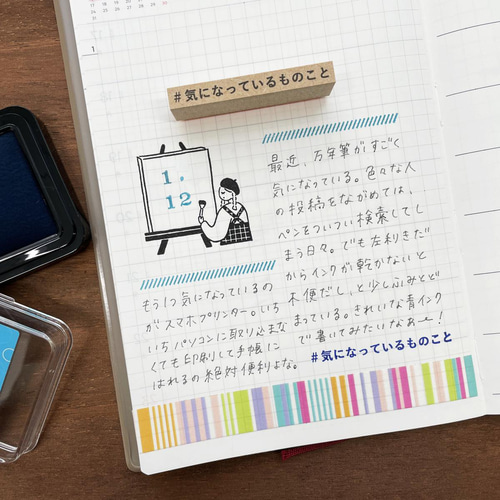 1
#気になっているものこと
1.
12
最近、万年筆がすごく
気になっている。色々な人
の投稿をながめては、
ペンをついつい検索してし
まう日々。でも左利きだ
からインクが乾かないと
不便だし、と少しふみとど
まっている。きれいな青インク
で書いてみたいなぁー!
#気になっているものこと
もう1つ気になっているの
がスマホプリンター。いち
いちパソコンに取り込まな
くても印刷して手帳に
はれるの絶対便利よな。